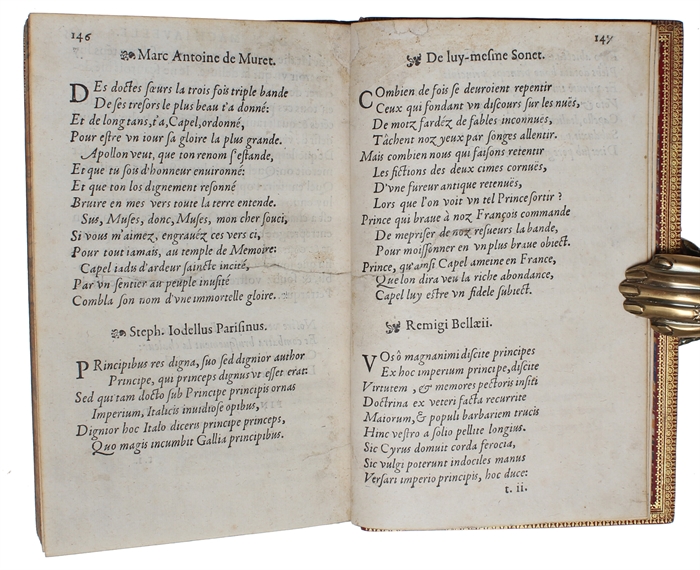 146
Marc Antoine de Muret.
DEs doctes sœurs la trois fois triple bande
De ses tresors le plus beau t'a donné:
Et de long tans, t'a, Capel, ordonné,
Pour estre vn iour sa gloire la plus grande.
Apollon veut, que ton renom s'estande,
Et que tu sois d'honneur enuironné:
Et que ton los dignement resonné
Bruire en mes vers toute la terre entende.
Sus, Muses, donc, Muses, mon cher souci,
Si vous m'aimez, engrauéz ces vers ci,
Pour tout iamais, au temple de Memoire:
Capel iadis d'ardeur saincte incité,
Par vn sentier au peuple inusité
Combla son nom d'vne immortelle gloire.
Steph. Iodellus Parisinus.
PRincipibus res digna, suo sed dignior author
Principe, qui princeps dignus vt esset erat:
Sed qui tam docto sub Principe principis ornas
Imperium, Italicis inuidiose opibus,
Dignior hoc Italo diceris principe princeps,
Quo magis incumbit Gallia principibus.
147
De luy-mesme Sonet.
COmbien de fois se deuroient repentir
Ceux qui fondant vn discours sur les nuës,
De motz fardéz de fables inconnues,
Tâchent noz yeux par songes allentir.
Mais combien nous qui faisons retentir
Les fictions des deux cimes cornuës,
D'vne fureur antique retenuës,
Lors que l'on voit vn tel Prince sortir?
Prince qui braue à noz François commande
De mepriser de noz resueurs la bande,
Pour moissonner en vn plus braue obiect.
Prince, qu'ainsi Capel ameine en France,
Que lon dira veu la riche abondance,
Capel luy estre vn fidele subiect.
Remigi Bellæii.
VOs ô magnanimi discite principes
Ex hoc imperium principe, discite
Virtutem, & memores pectoris insiti
Doctrina ex veteri facta recurrite
Maiorum, & populi barbariem trucis
Hinc vestro a solio pellite longius.
Sic Cyrus domuit corda ferocia,
Sic vulgi poterunt indociles manus
Versari imperio principis, hoc duce:
t. ii.